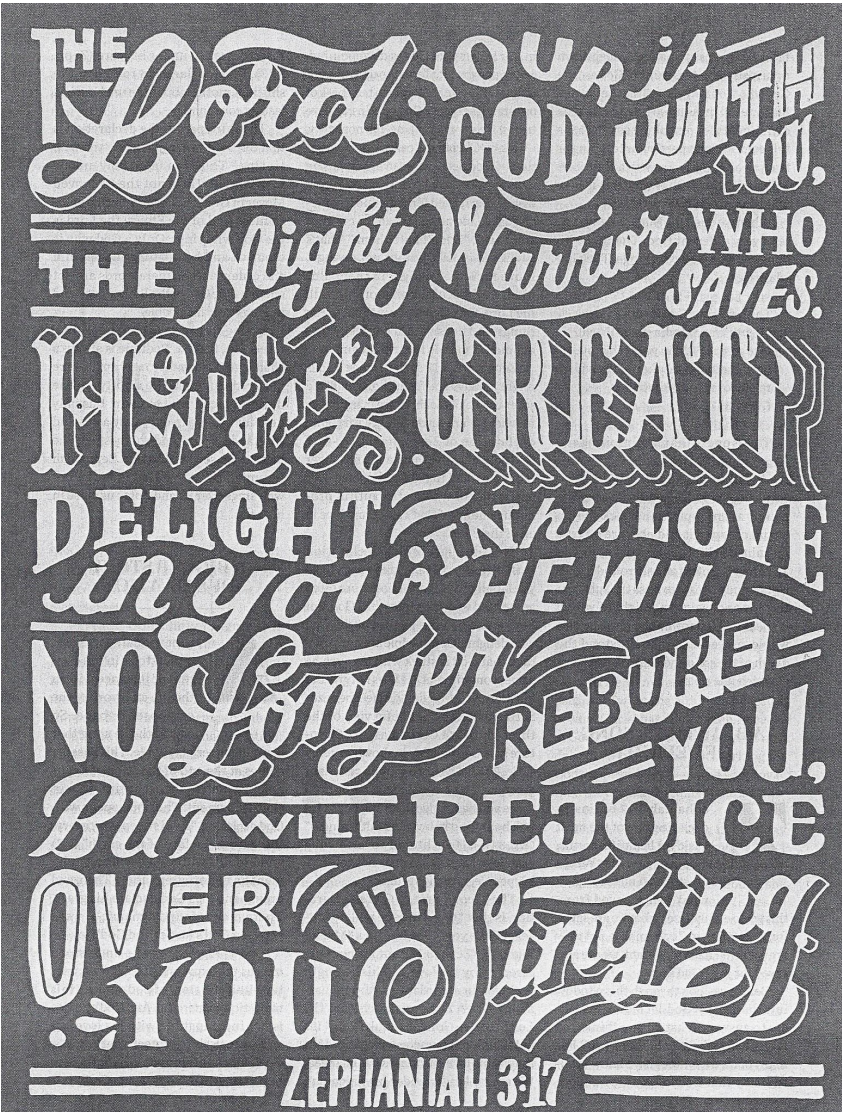 THE Lord YOUR GOD is WITH YOU,
THE Mighty Warrior WHO SAVES.
He WILL TAKE GREAT
DELIGHT in you; IN his LOVE HE WILL
NO Longer REBUKE YOU,
BUT WILL REJOICE
OVER YOU WITH Singing.
ZEPHANIAH 3:17